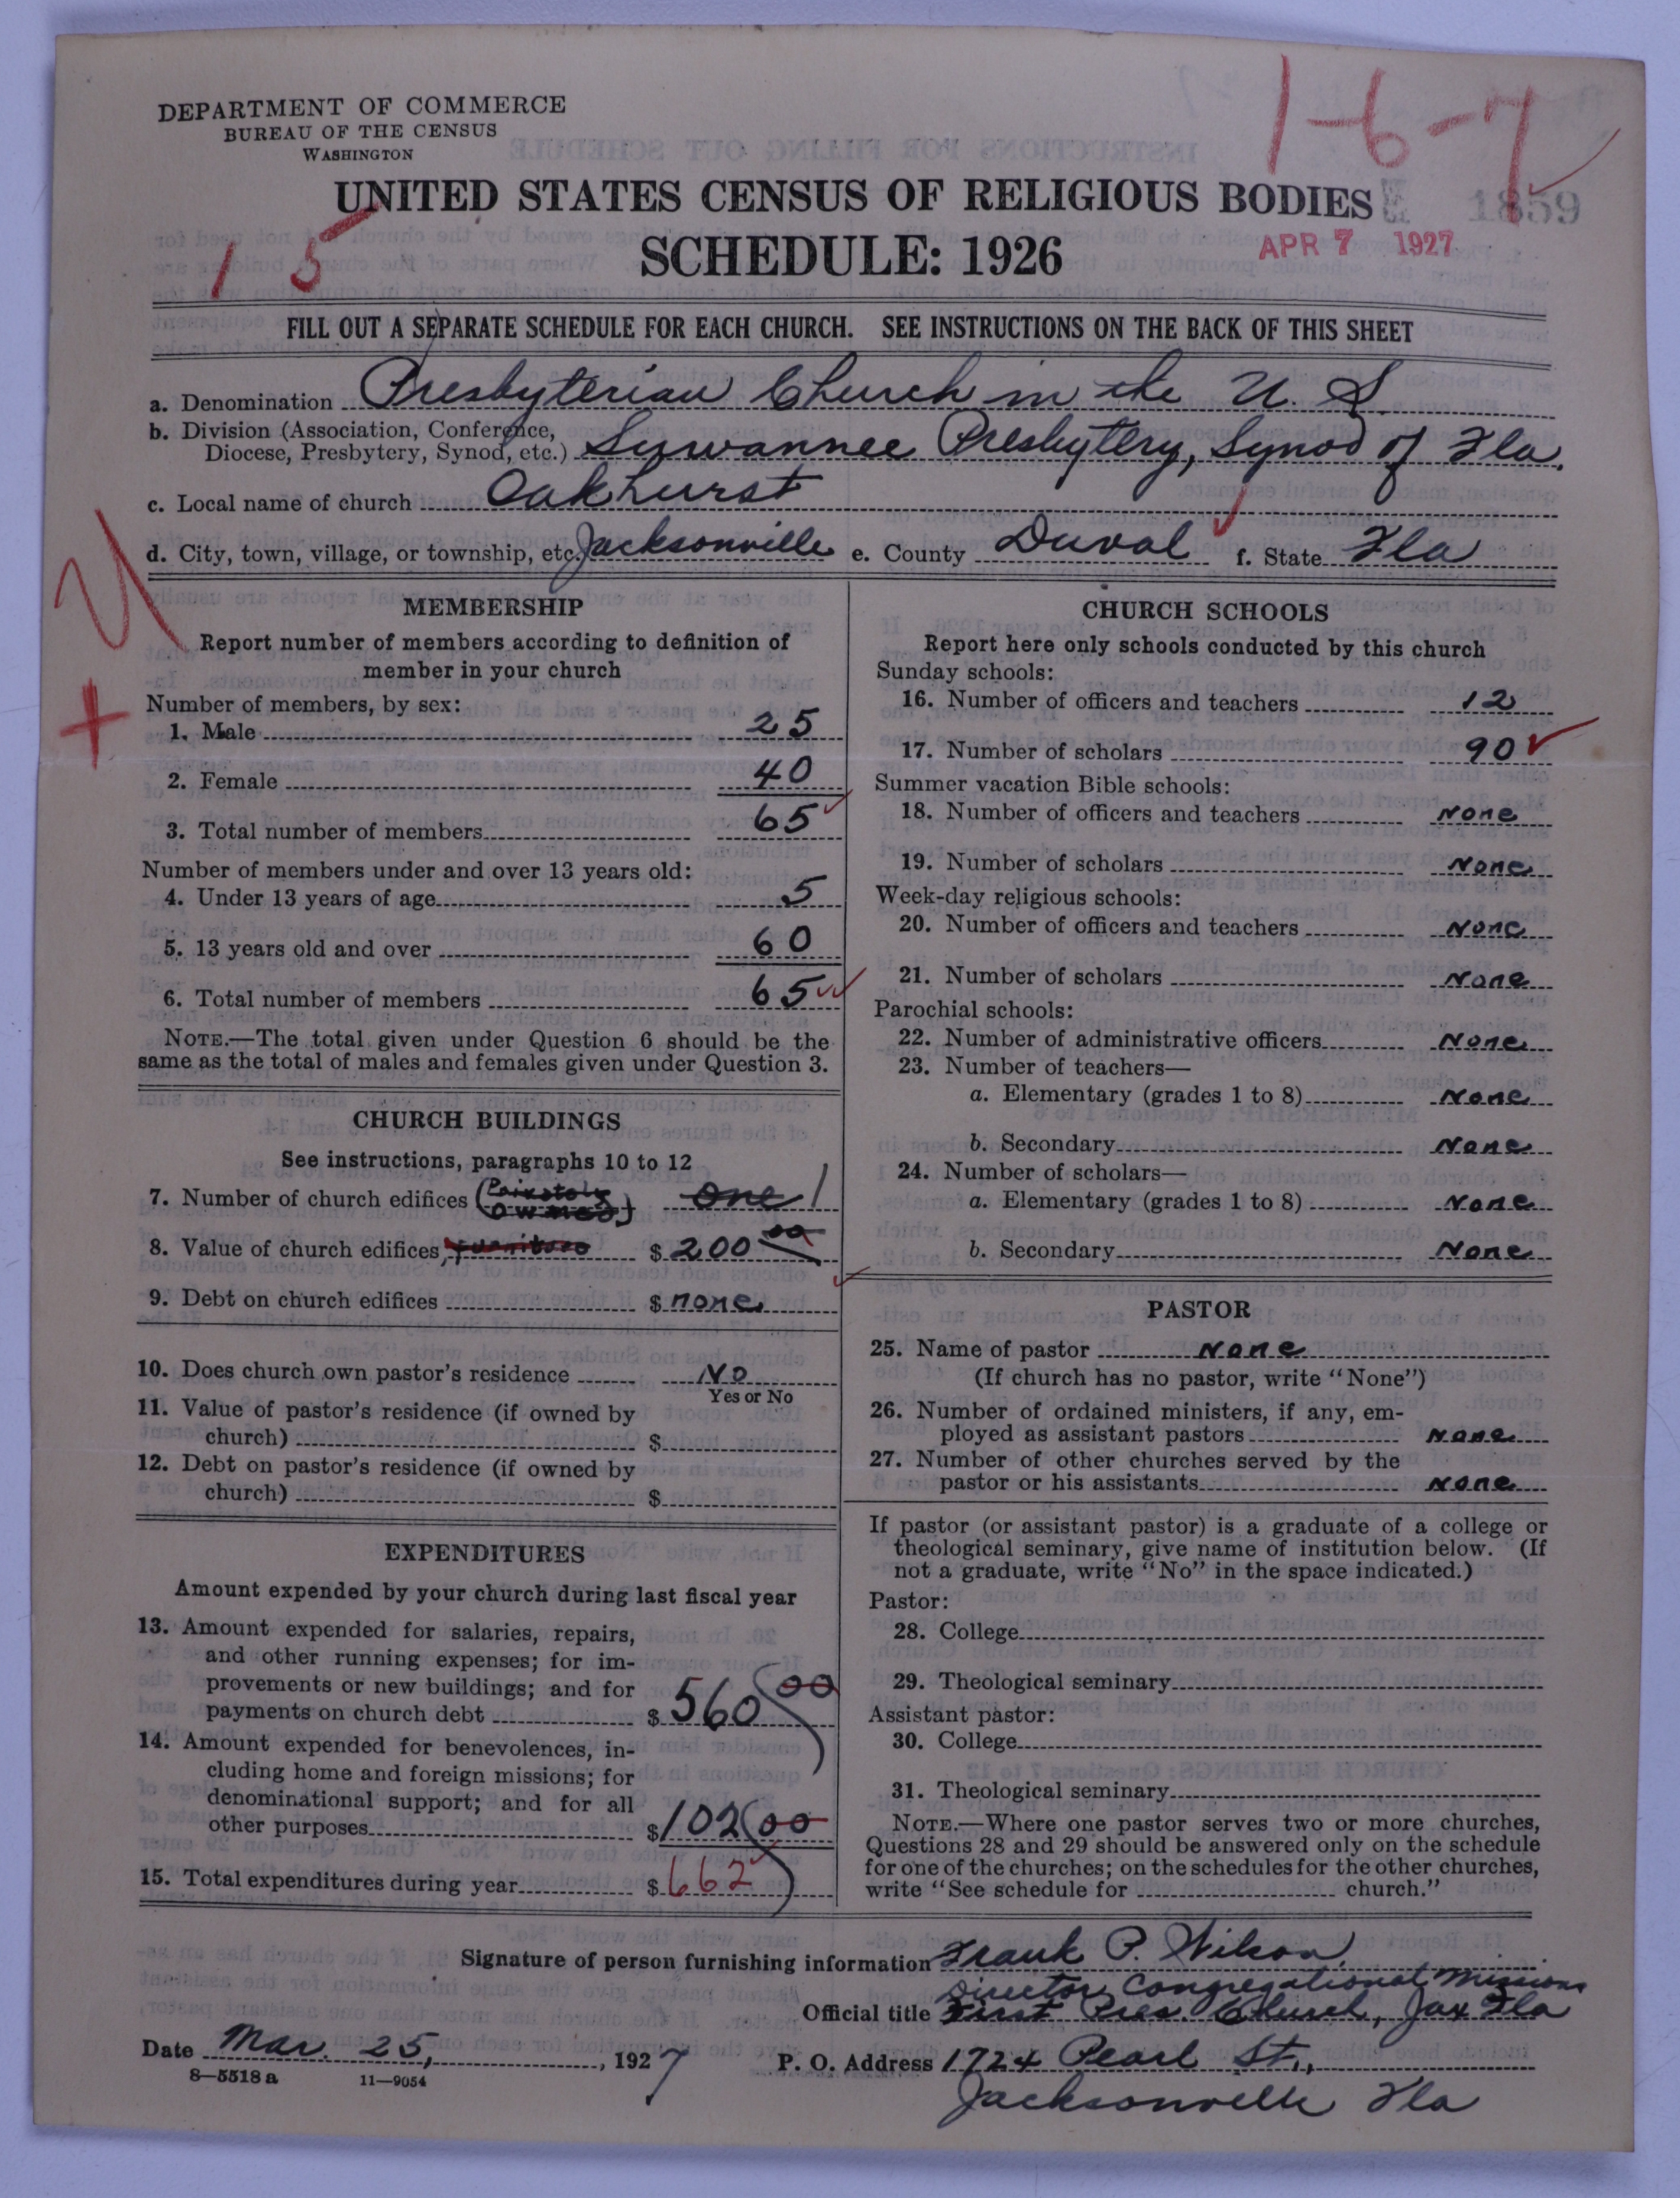 1-6-7
DEPARTMENT OF COMMERCE
BUREAU OF THE CENSUS
WASHINGTON
UNITED STATES CENSUS OF RELIGIOUS BODIES
1859
SCHEDULE: 1926
APR 7 1927
1 5
FILL OUT A SEPARATE SCHEDULE FOR EACH CHURCH. SEE INSTRUCTIONS ON THE BACK OF THIS SHEET
a. Denomination Presbyterian Church in the U. S.
b. Division (Association, Conference,
Diocese, Presbytery, Synod, etc.) Suwannee Presbytery, Synod of Fla.
c. Local name of church Oakhurst
d. City, town, village, or township, etc. Jacksonville e. County Duval f. State Fla
MEMBERSHIP
Report number of members according to definition of
member in your church
Number of members, by sex:
1. Male 25
2. Female 40
3. Total number of members 65
Number of members under and over 13 years old:
4. Under 13 years of age 5
5. 13 years old and over 60
6. Total number of members 65
NOTE.—The total given under Question 6 should be the
same as the total of males and females given under Question 3.
CHURCH BUILDINGS
See instructions, paragraphs 10 to 12
7. Number of church edifices (Privately Owned) One 1
8. Value of church edifices, furniture $ 200 00
9. Debt on church edifices $ none
10. Does church own pastor's residence No
Yes or No
11. Value of pastor's residence (if owned by
church) $
12. Debt on pastor's residence (if owned by
church) $
EXPENDITURES
Amount expended by your church during last fiscal year
13. Amount expended for salaries, repairs,
and other running expenses; for im-
provements or new buildings; and for
payments on church debt $ 560 00
14. Amount expended for benevolences, in-
cluding home and foreign missions; for
denominational support; and for all
other purposes $ 102 00
15. Total expenditures during year $ 662
CHURCH SCHOOLS
Report here only schools conducted by this church
Sunday schools:
16. Number of officers and teachers 12
17. Number of scholars 90
Summer vacation Bible schools:
18. Number of officers and teachers None
19. Number of scholars None
Week-day religious schools:
20. Number of officers and teachers None
21. Number of scholars None
Parochial schools:
22. Number of administrative officers None
23. Number of teachers—
a. Elementary (grades 1 to 8) None
b. Secondary None
24. Number of scholars—
a. Elementary (grades 1 to 8) None
b. Secondary None
PASTOR
25. Name of pastor None
(If church has no pastor, write "None")
26. Number of ordained ministers, if any, em-
ployed as assistant pastors None
27. Number of other churches served by the
pastor or his assistants None
If pastor (or assistant pastor) is a graduate of a college or
theological seminary, give name of institution below. (If
not a graduate, write "No" in the space indicated.)
Pastor:
28. College
29. Theological seminary
Assistant pastor:
30. College
31. Theological seminary
NOTE.—Where one pastor serves two or more churches,
Questions 28 and 29 should be answered only on the schedule
for one of the churches; on the schedules for the other churches,
write "See schedule for church."
Signature of person furnishing information Frank P. Wilson
Director Congregational Missions
Official title First Pres. Church, Jax Fla
Date Mar. 25, 1927
P. O. Address 1724 Pearl St.,
8—5518 a 11—9054
Jacksonville Fla